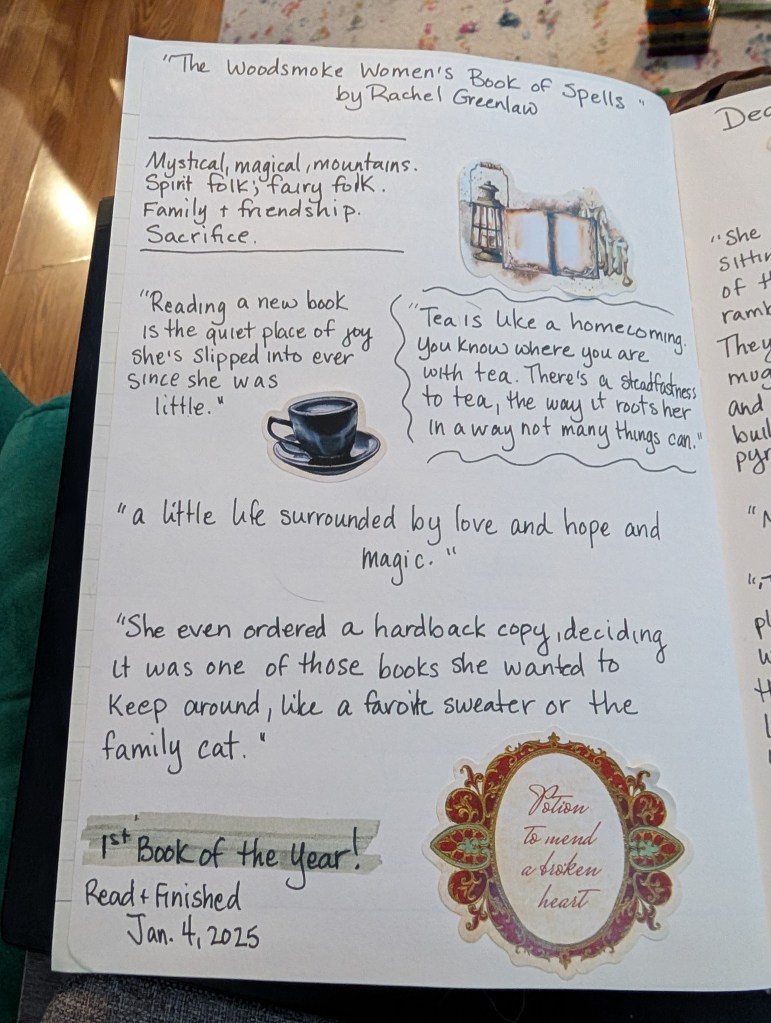 "The Woodsmoke Women's Book of Spells"
by Rachel Greenlaw
Mystical, magical, mountains.
Spirit folk; fairy folk.
Family + friendship.
Sacrifice.
"Reading a new book
is the quiet place of joy
she's slipped into ever
since she was
little."
"Tea is like a homecoming.
You know where you are
with tea. There's a steadfastness
to tea, the way it roots her
in a way not many things can."
"a little life surrounded by love and hope and
magic."
"She even ordered a hardback copy, deciding
it was one of those books she wanted to
keep around, like a favorite sweater or the
family cat."
Potion
to mend
a broken
heart
1st Book of the Year!
Read + Finished
Jan. 4, 2025
"She
of
They
and